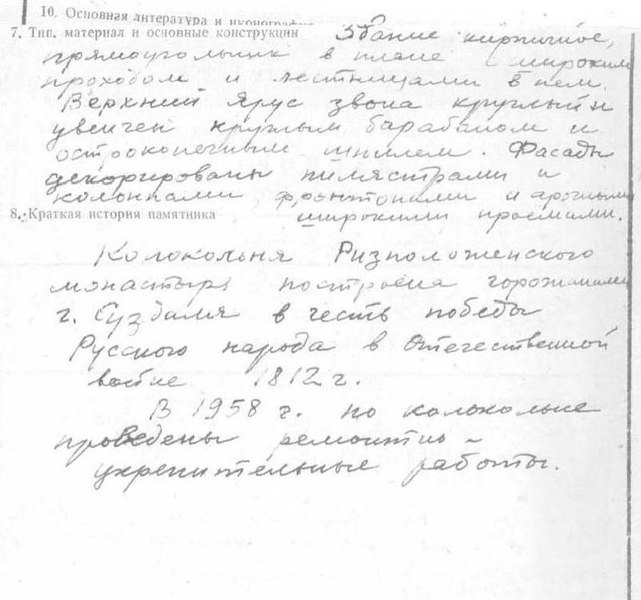 10. Основная литература и иконография
7. Тип, материал и основные конструкции Здание кирпичное,
прямоугольник в плане с широким
проходом и лестницами в нем.
Верхний Ярус звона круглый и
увенчен круглым барабаном и
остроконечным шпилем. Фасады
декорированы пилястрами и
колоннами, фронтонами и арочными
8. Краткая история памятника широкими проемами.
Колокольня Ризположенского
монастыря построена горожанами
г. Суздаля в честь победы
Русского народа в Отечественной
войне 1812 г.
В 1958 г. по колокольне
проведены ремонтно-
укрепительные работы.